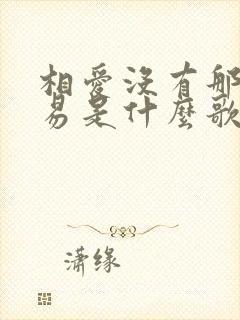 相愛没有那
易是什麼歌
潇缘